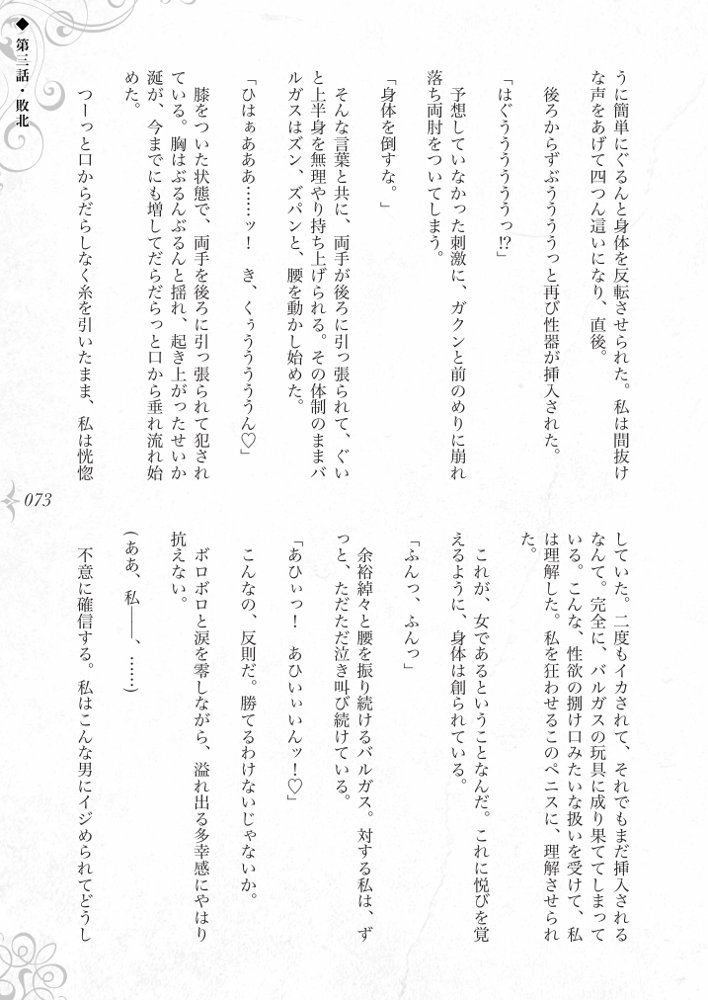 ◆ 第三話・敗北
うに簡単にぐるんと身体を反転させられた。私は間抜け
な声をあげて四つん這いになり、直後。
後ろからずぶうううっと再び性器が挿入された。
「はぐうううううっっ!?」
予想していなかった刺激に、ガクンと前のめりに崩れ
落ち両肘をついてしまう。
「身体を倒すな。」
そんな言葉と共に、両手が後ろに引っ張られて、ぐい
と上半身を無理やり持ち上げられる。その体制のままバ
ルガスはズン、ズパンと、腰を動かし始めた。
「ひはぁあああ……ッ! き、くぅうううううん♡」
膝をついた状態で、両手を後ろに引っ張られて犯され
ている。胸はぶるんぶるんと揺れ、起き上がったせいか
涎が、今までにも増してだらだらっと口から垂れ流れ始
めた。
つーっと口からだらしなく糸を引いたまま、私は恍惚
していた。二度もイカされて、それでもまだ挿入される
なんて。完全に、バルガスの玩具に成り果ててしまって
いる。こんな、性欲の捌け口みたいな扱いを受けて、私
は理解した。私を狂わせるこのペニスに、理解させられ
た。
これが、女であるということなんだ。これに悦びを覚
えるように、身体は創られている。
「ふんっ、ふんっ」
余裕綽々と腰を振り続けるバルガス。対する私は、ず
っと、ただただ泣き叫び続けている。
「あひぃっ! あひいぃいんッ!♡」
こんなの、反則だ。勝てるわけないじゃないか。
ボロボロと涙を零しながら、溢れ出る多幸感にやはり
抗えない。
(ああ、私――、……)
不意に確信する。私はこんな男にイジめられてどうし
073